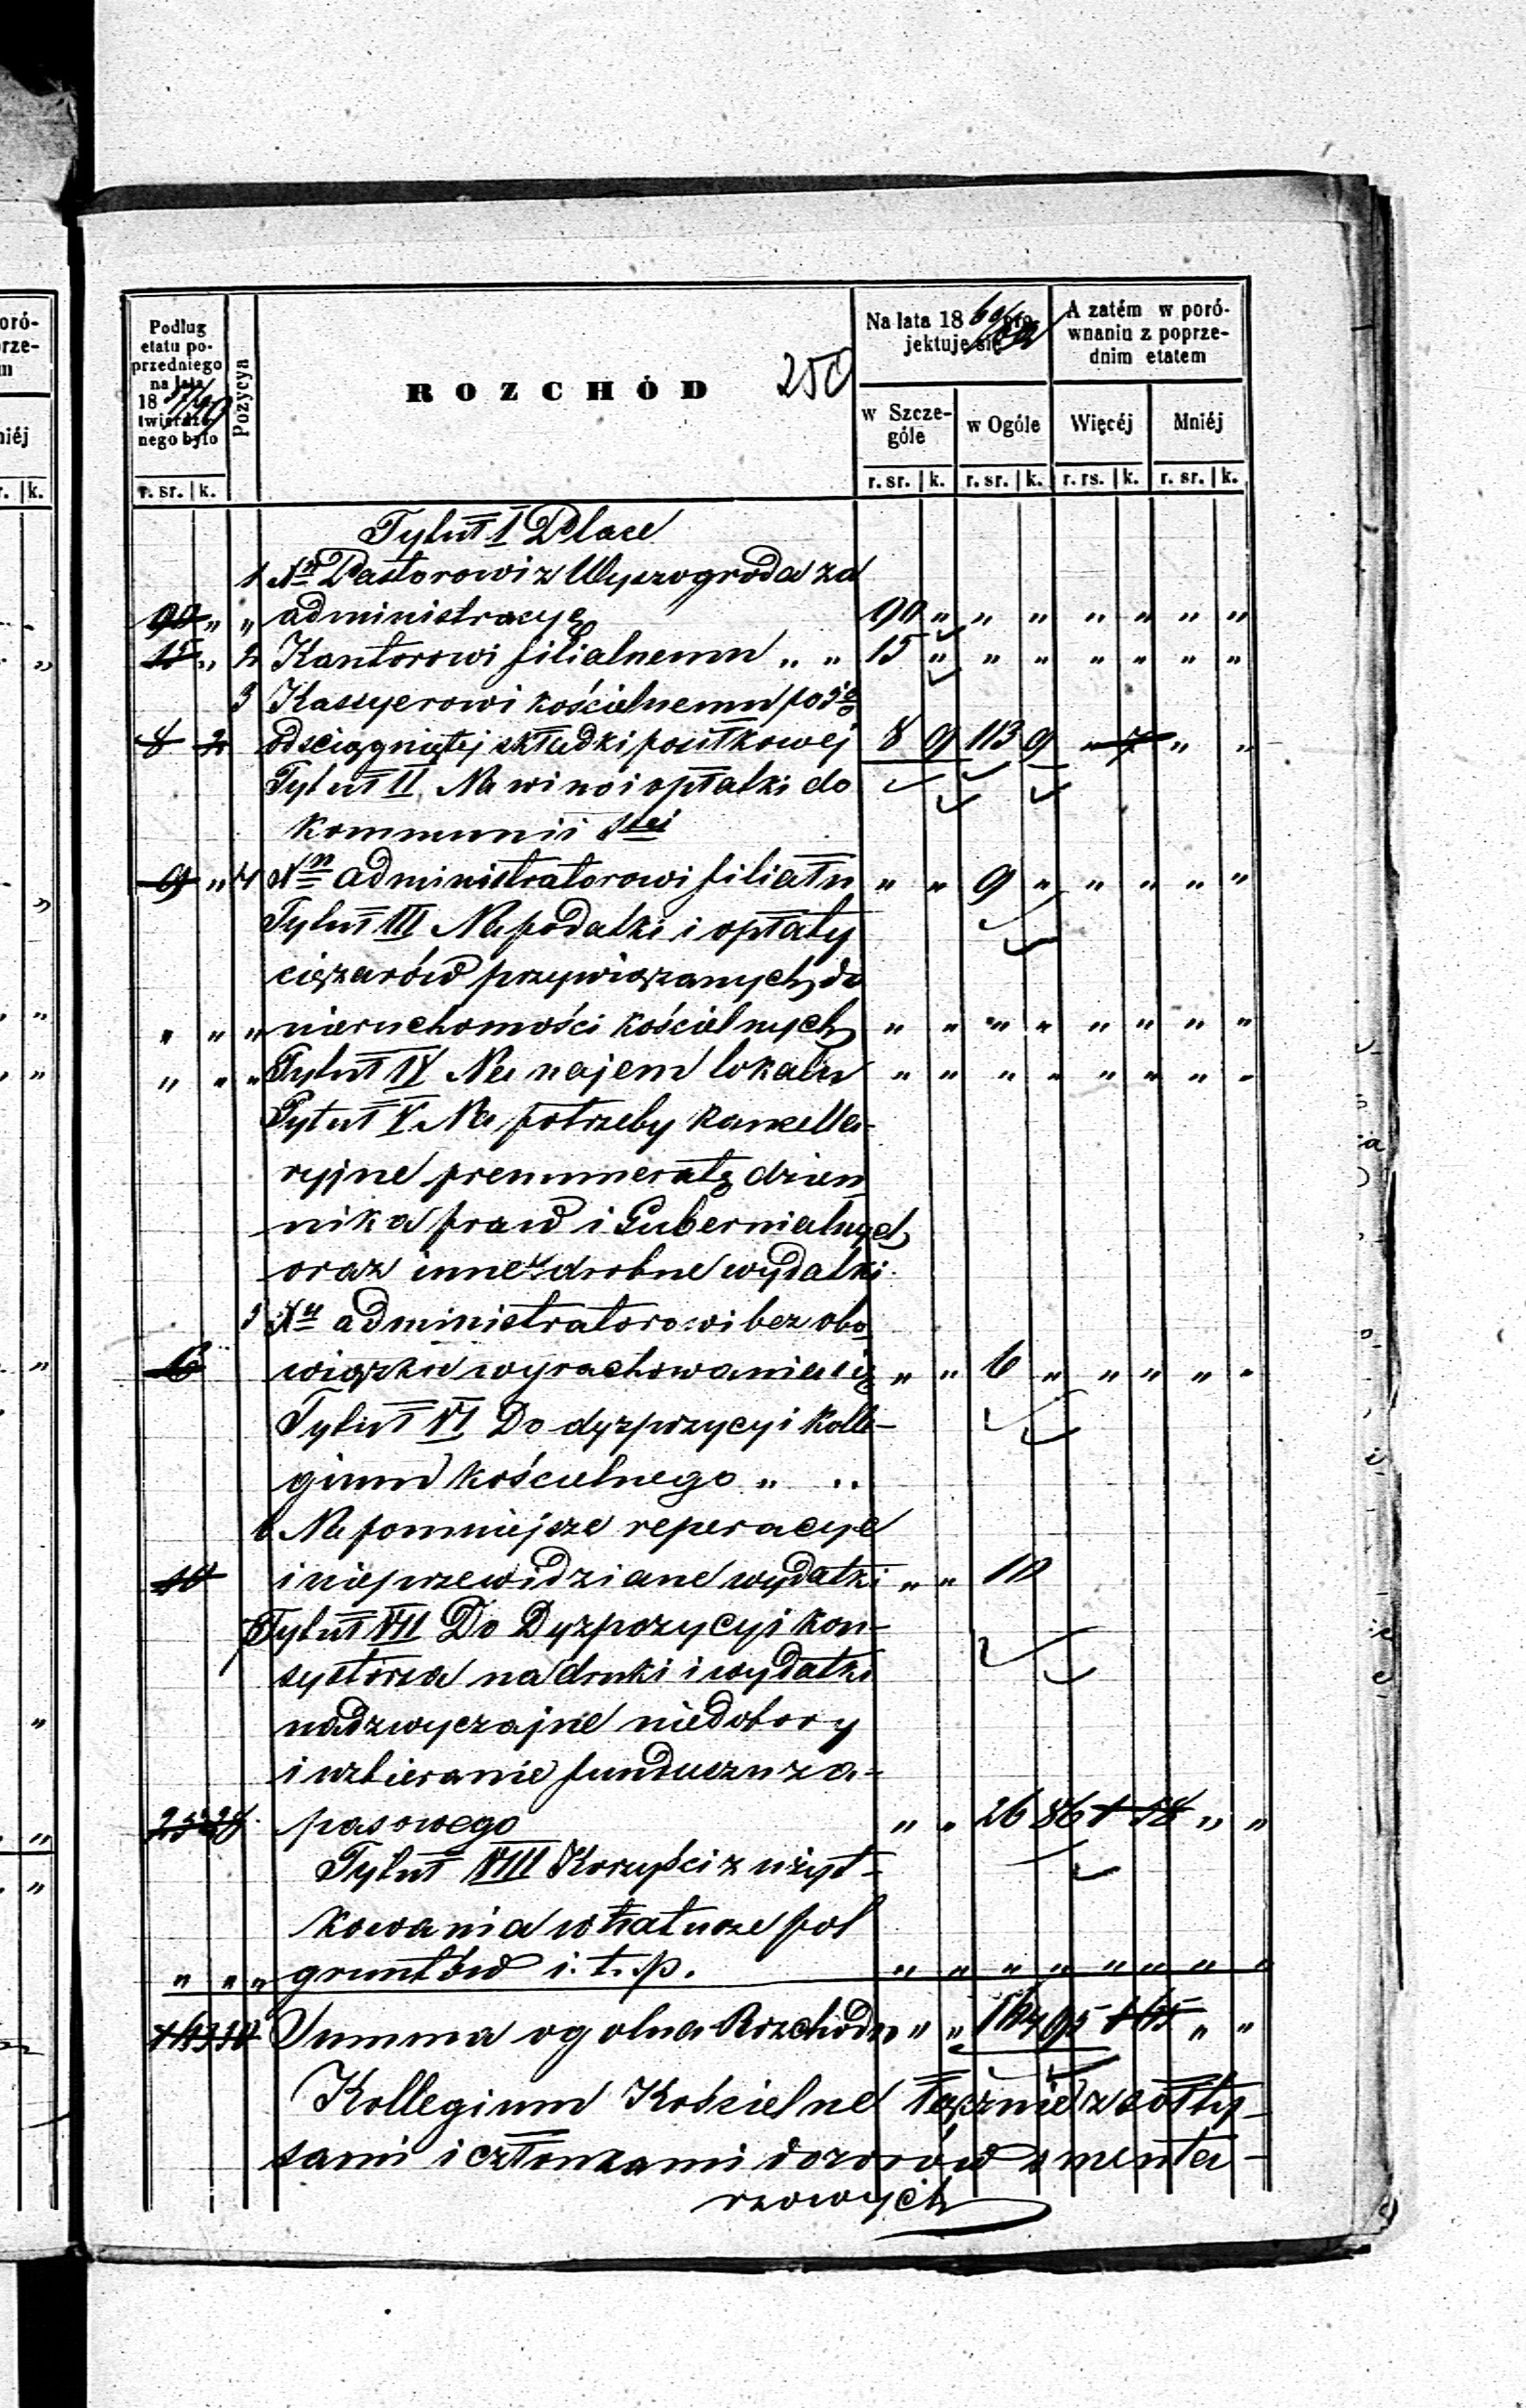 Podług etatu poprzedniego na lata 1857/59 twierdzonego było
r. sr. | k.
Pozycya
ROZCHÓD
250
Na lata 1860/62 projektuje się
w Szczególe
w Ogóle
r. sr. | k. r. sr. | k.
A zatém w porównaniu z poprzednim etatem
Więcéj
Mniéj
r. rs. | k. r. sr. | k.
Tytuł I Płace
1 Nn Pastorowi z Wyszogroda za
90 " " administracyę 90 " " " " " " "
15 " 2 Kantorowi filialnemu " " 15 " " " " " " "
3 Kassyerowi kościelnemu po 5%
8 2 od ściągniętej składki posiłkowej 8 9 113 9 " 7 " "
Tytuł II Na wino i opłatki do
kommunii Stej
9 " 4 Nn administratorowi filiału " " 9 " " " " "
Tytuł III Na podatki i opłaty
ciężarów przywiązanych do
" " " nieruchomości kościelnych " " " " " " " "
" " " Tytuł IV Na najem lokalu " " " " " " " "
Tytuł V Na potrzeby kancella-
ryjne prenumeratę dzien
nika praw i Gubernialnych
oraz inne drobne wydatki
5 Nn administratorowi bez obo
6 wiązku wyrachowania się " " 6 " " " " "
Tytuł VI Do dyzpozycyi Kolle-
gium kościelnego " "
6 Na pomniejsze reperacye
10 i nieprzewidziane wydatki " " 10
7 Tytuł VII Do Dyzpozycyi kon-
systorza na druki i wydatki
nadzwyczajne niedobory
i uzbieranie funduszu za-
25 28 pasowego " " 26 86 1 58 " "
Tytuł VIII Korzyści z użyt-
kowania w naturze pól
" " " gruntów i. t. p. " " " " " " " "
163 30 Summa ogólna Rozchodu " " 164 95 1 65 " "
Kollegium Kościelne łącznie z sołty-
sami i członkami dozorów smenta-
rzowych